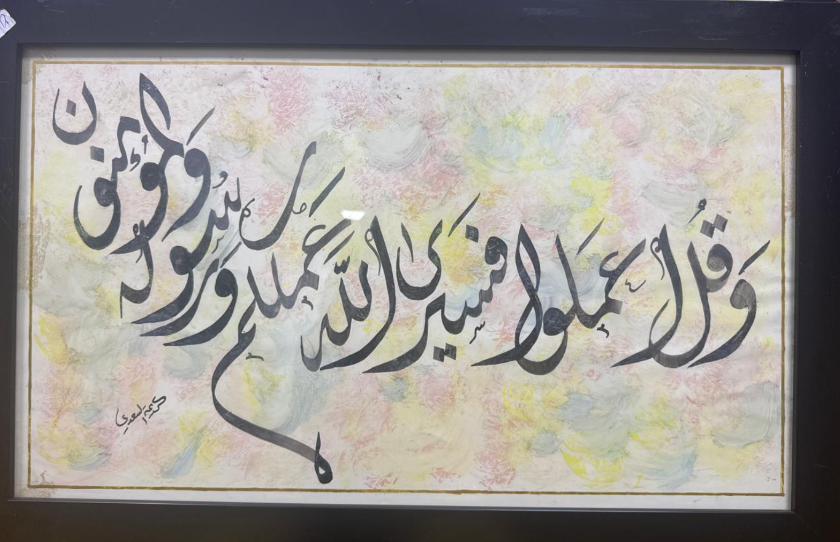 وَقُلِ اعْمَلُوا فَسَيَرَى اللّٰه عَمَلَكُم وَرَسُولُهُ وَالْمُؤْمِنُون
كريمة السعدي